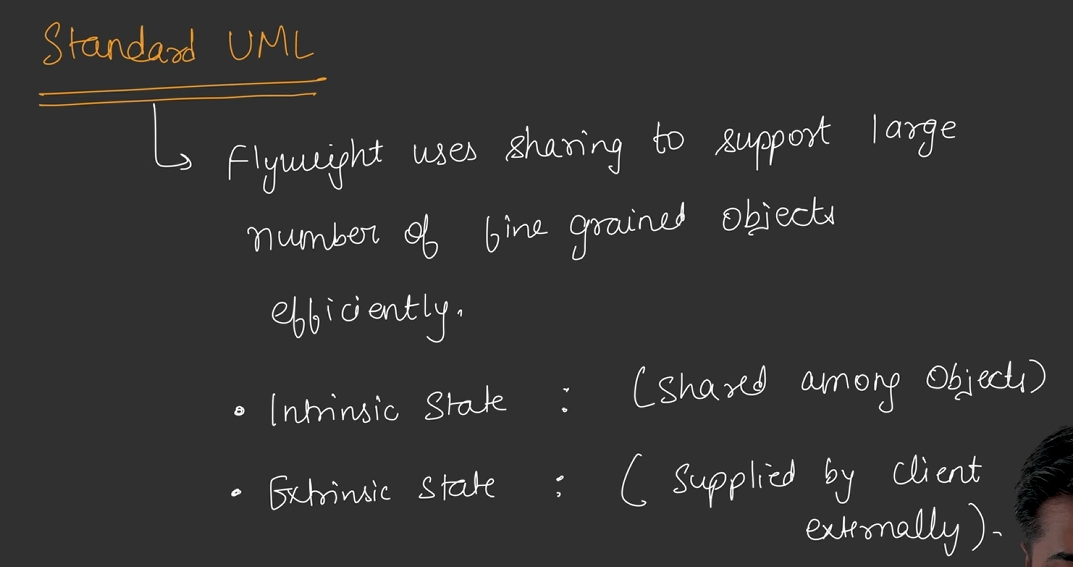 Standard UML
Flyweight uses sharing to support large
number of fine grained objects
efficiently.
• Intrinsic State : (shared among Objects)
• Extrinsic State : (Supplied by Client
externally).